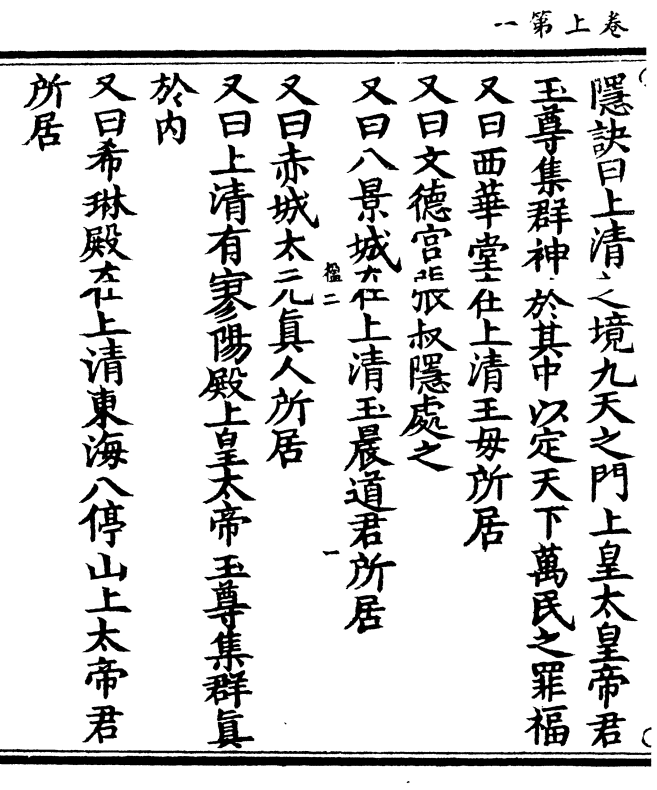 卷上第一
隱訣曰上清之境九天之門上皇太皇帝君
玉尊集群神於其中以定天下萬民之罪福
又曰西華堂在上清王母所居
又曰文德宮張叔隱處之
又曰八景城在上清玉晨道君所居
又曰赤城太元真人所居
又曰上清有寥陽殿上皇太帝玉尊集群真
於内
又曰希琳殿在上清東海八停山上太帝君
所居
楹二
一